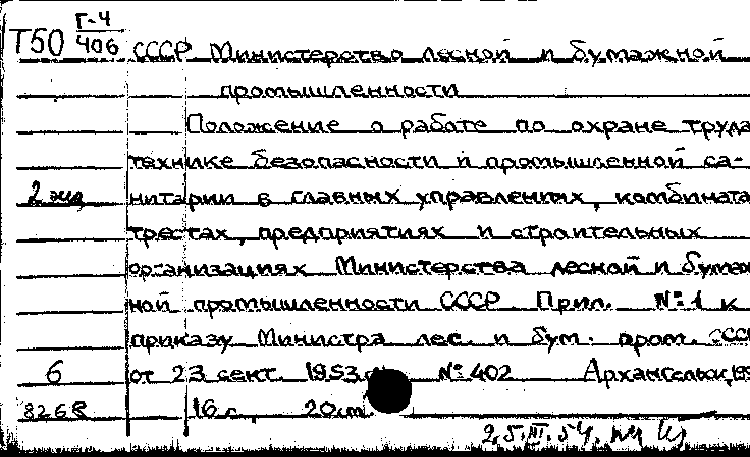 Г-4
Т50 406 СССР Министерство лесной и бумажной
промышленности
Положение о работе по охране труда
технике безопасности и промышленной са-
2 экз нитарии в главных управлениях, комбината
трестах, предприятиях и строительных
организациях Министерства лесной и бумаж
ной промышленности СССР Прил. №1 к
приказу Министра лес. и бум. пром. СССР
6 от 23 сент. 1953 №402 Архангельск, 195
8268 16 с. 20см.
2.5.III.54.